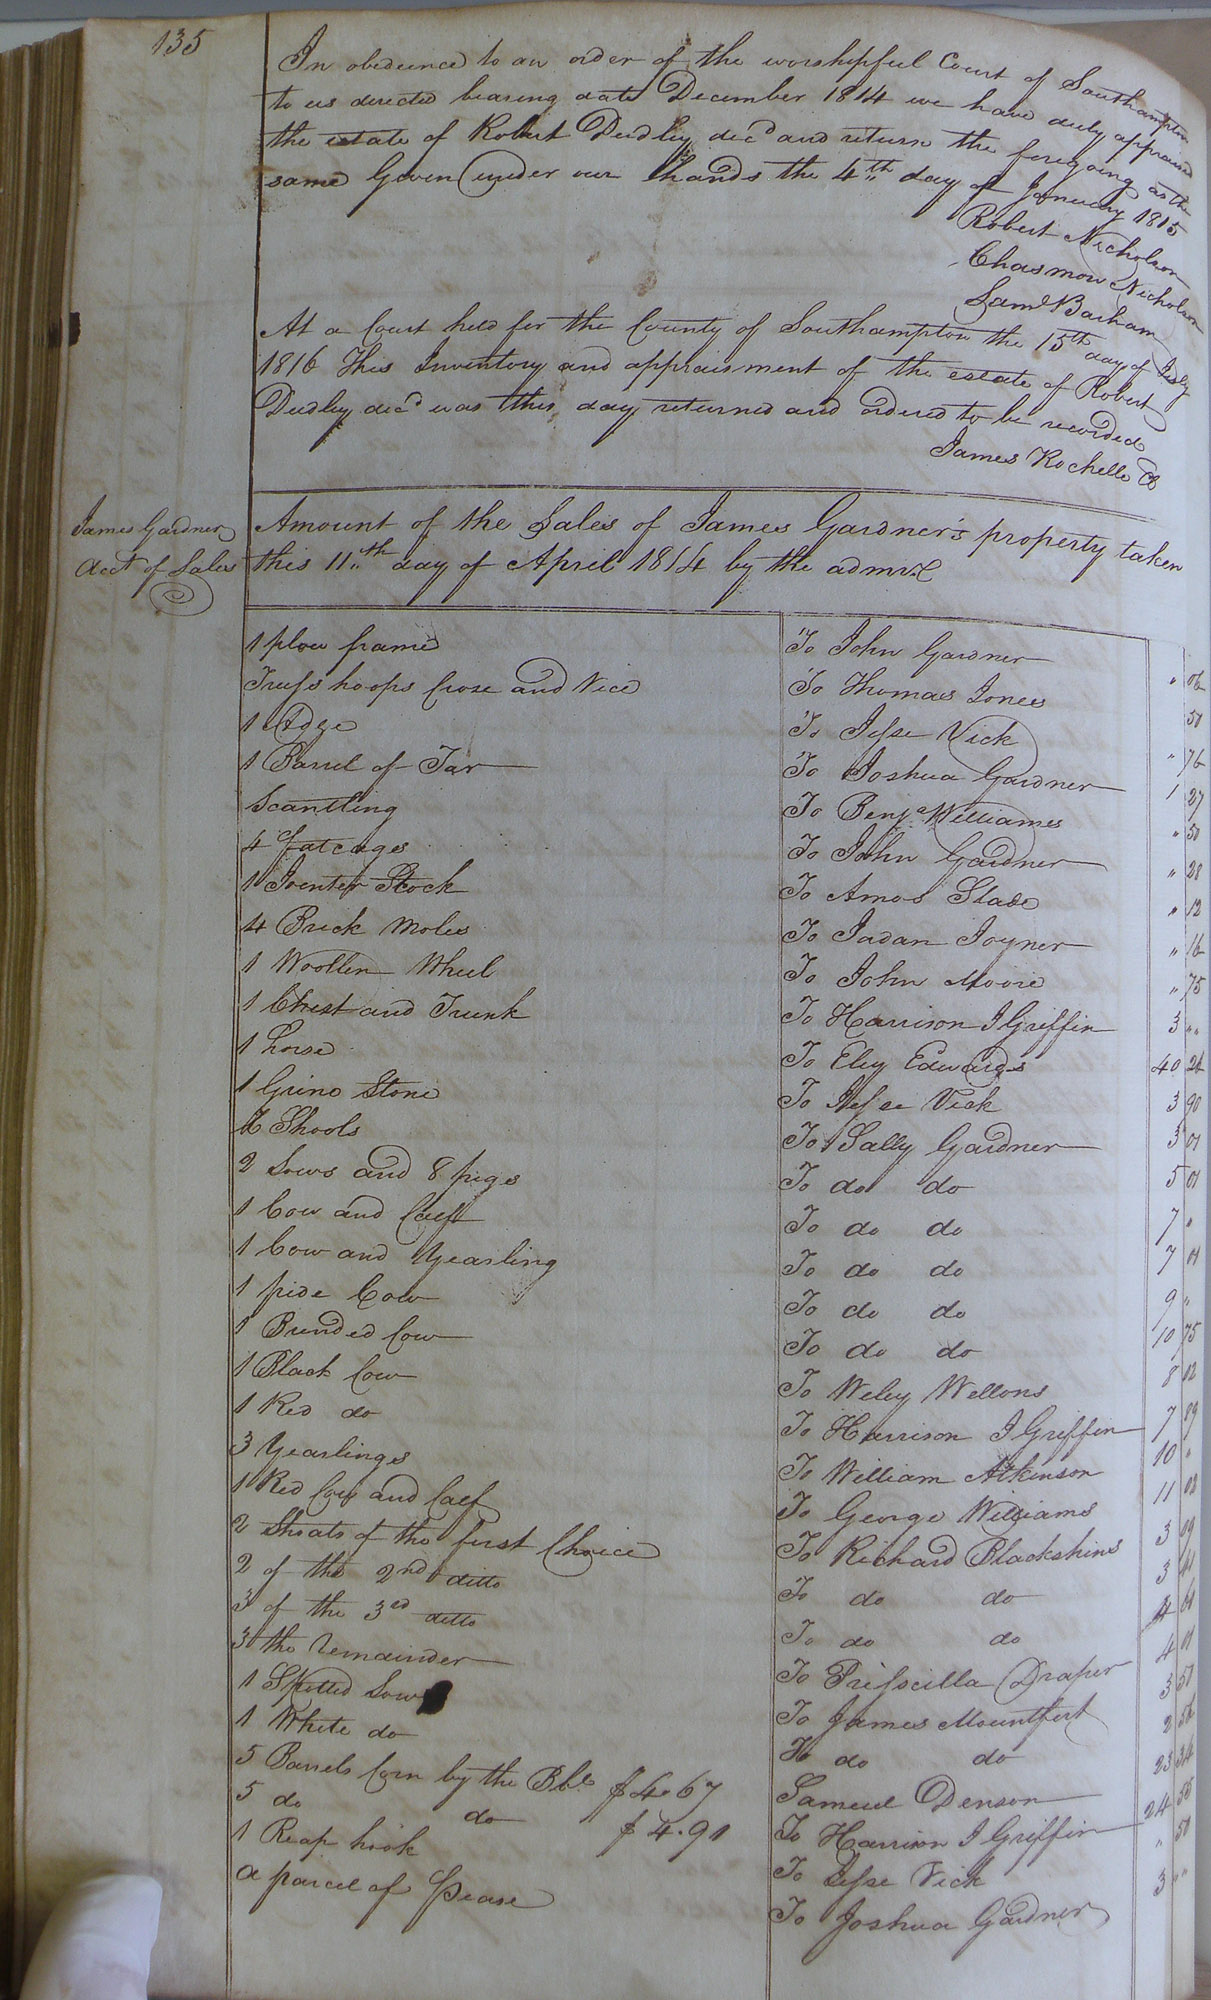 135
In obedience to an order of the worshipful Court of Southampton
to us directed bearing date December 1814 we have duly appraised
the estate of Robert Dudley decd and return the foregoing as the
same Given under our hands the 4th day of January 1815
Robert Nicholson
Chasmon Nicholson
Saml Barham
At a Court held for the County of Southampton the 15th day of July
1816 This Inventory and appraisment of the estate of Robert
Dudley decd was this day returned and ordered to be recorded
James Rochelle
James Gardner
Acct of Sales
Amount of the Sales of James Gardner's property taken
this 11th day of April 1814 by the admr
1 plow frame To John Gardner " 06
Truss hoops Croze and Vice To Thomas Jones 50
1 Adze To Jesse Vick " 76
1 Barrel of Tar To Joshua Gardner 1 27
Scantling To Benja Williames " 50
4 fat To John Gardner " 28
1 Jointer Stock To Amos Slade " 12
4 Brick Moles To Jadan Joyner " 16
1 Woollen Wheel To John Moore " 75
1 Chest and Trunk To Harrison J Griffin 3 "
1 horse To Eley Edwards 40 24
1 Grind Stone To Jesse Vick 3 90
6 Shoots To Sally Gardner 3 01
2 Sows and 8 pigs To do do 5 01
1 Cow and Calf To do do 7 "
1 Cow and Yearling To do do 7 01
1 pide Cow To do do 9 "
1 Brinded Cow To do do 10 75
1 Black Cow To Weley Wellons 8 02
1 Red do To Harrison J Griffin 7 89
3 Yearlinges To William Atkinson 10 "
1 Red Cow and Calf To George Williams 11 02
2 Shoats of the first Choice To Richard Blackshins 3 09
2 of the 2nd ditto To do do 3 41
3 of the 3rd ditto To do do 4 01
3 the remainder To Prisscilla Draper 4 01
1 Spotted Sow To James Mountfort 3 51
1 White do To do do 2 56
5 Barrels Corn by the Bbl $4.67 Samuel Denson 23 34
5 do do $4.91 To Harrison J Griffin 24 55
1 Reap hook To Jesse Vick " 51
a parcel of Pease To Joshua Gardner 3 "